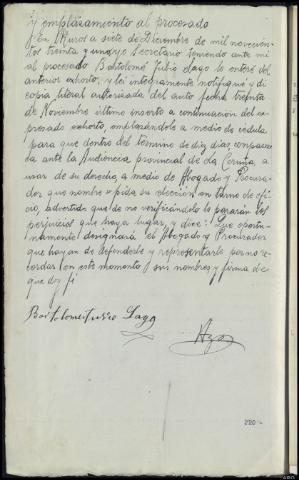 y emplazamiento al procesado
En Muros a siete de Diciembre de mil novecien-
tos treinta y uno yo Secretario teniendo ante mi
al procesado Bartolomé Julio Lago le enteré del
anterior exhorto, y le integramente notifiqué y di
copia literal autorizada del auto fecha treinta
de Noviembre último inserto a continuación del ex-
presado exhorto, emplazándole a medio de cédula
para que dentro del termino de diez dias, comparez-
ca ante la Audiencia provincial de La Coruña, a
usar de su derecho a medio de Abogado y Procura-
dor que nombre o pida su elección en turno de ofi-
cio, advertido que de no verificándolo le pararán los
perjuicios que haya lugar, y dice: Que oportu-
namente designará el Abogado y Procurador
que hayan de defenderle y representarle por no re-
cordar en este momento sus nombres y firma de
que doy fé
Bartolome Lago
220 -